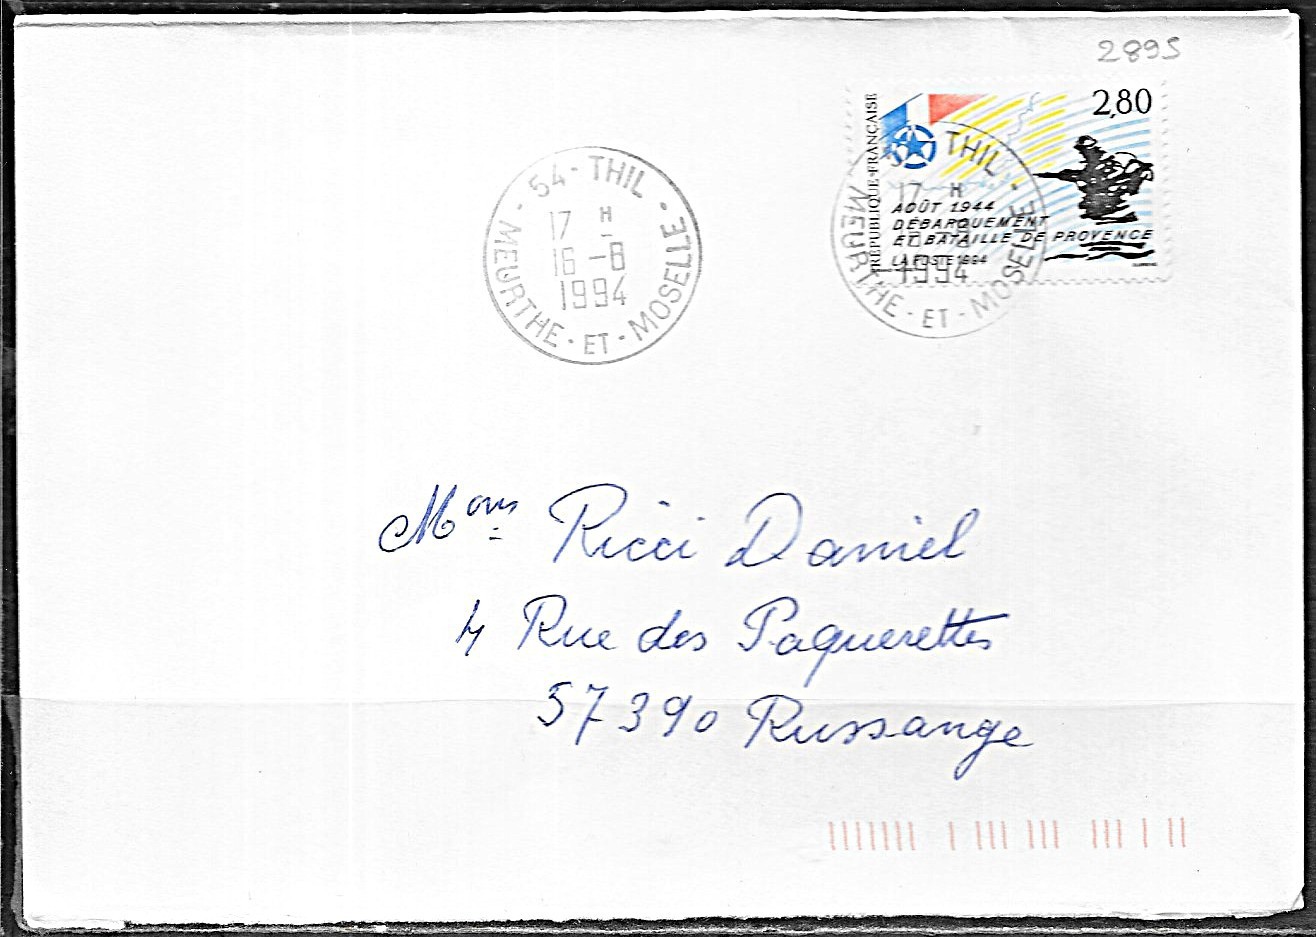 2895
RÉPUBLIQUE FRANÇAISE
2,80
AOÛT 1944
DÉBARQUEMENT
ET BATAILLE DE PROVENCE
LA POSTE 1994
54 - THIL
17 H
16 -8
1994
MEURTHE - ET - MOSELLE
THIL
17 H
1994
MEURTHE - ET - MOSELLE
Mons Ricci Daniel
4 Rue des Paquerettes
57390 Russange